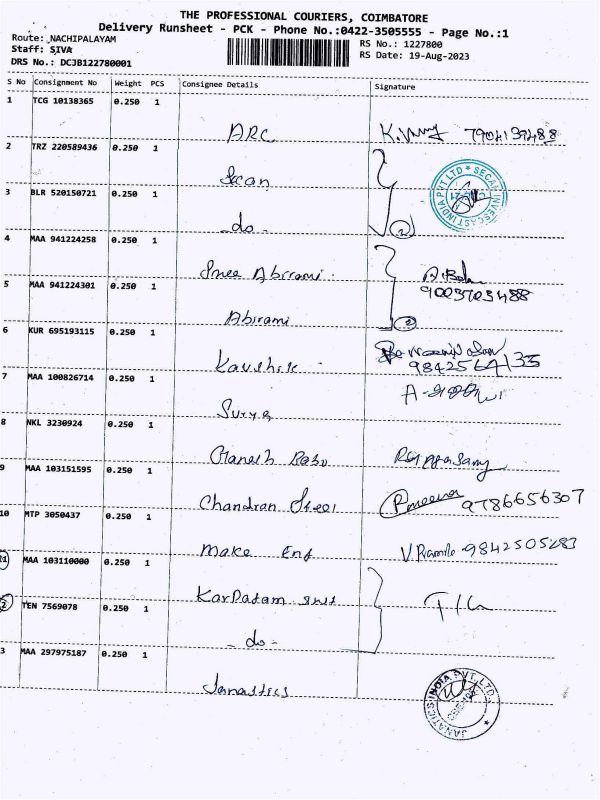 THE PROFESSIONAL COURIERS, COIMBATORE
Delivery Runsheet - PCK - Phone No.:0422-3505555 - Page No.:1
Route: NACHIPALAYAM
RS No.: 1227800
Staff: SIVA
RS Date: 19-Aug-2023
DRS No.: DCJB122780001
S No Consignment No Weight PCS Consignee Details Signature
1 TCG 10138365 0.250 1
ARC 7904139488
2 TRZ 220589436 0.250 1
Secan
3 BLR 520150721 0.250 1
- do -
4 MAA 941224258 0.250 1
Shree Abirami
5 MAA 941224301 0.250 1
Abirami
6 KUR 695193115 0.250 1
Kaushik 9842564133
7 MAA 100826714 0.250 1
Surya
8 NKL 3230924 0.250 1
Ganesh Babu
9 MAA 103151595 0.250 1
Chandran Steel Prneena 9786656307
10 MTP 3050437 0.250 1
Make Eng V.Pramila 9842505283
11 MAA 103110000 0.250 1
Karpagam
2 TEN 7569078 0.250 1
- do -
3 MAA 297975187 0.250 1
Janatics
JANATICS INDIA PVT. LTD.